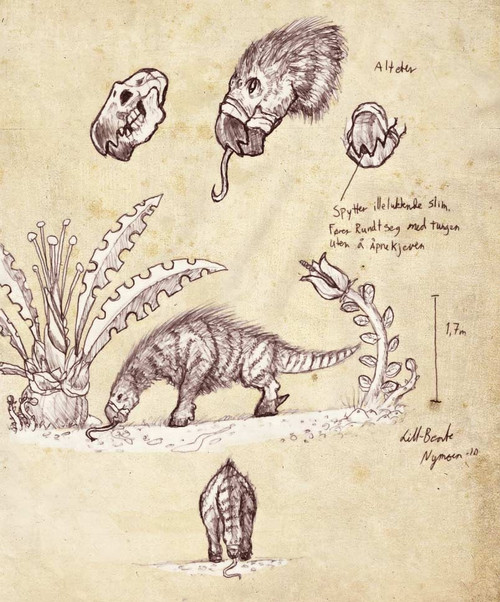 Alteter
Spytter illeluktende slim.
Føler Rundt seg med tungen
uten å åpne kjeven
1,7m
Lill-Bente
Nymoen -10